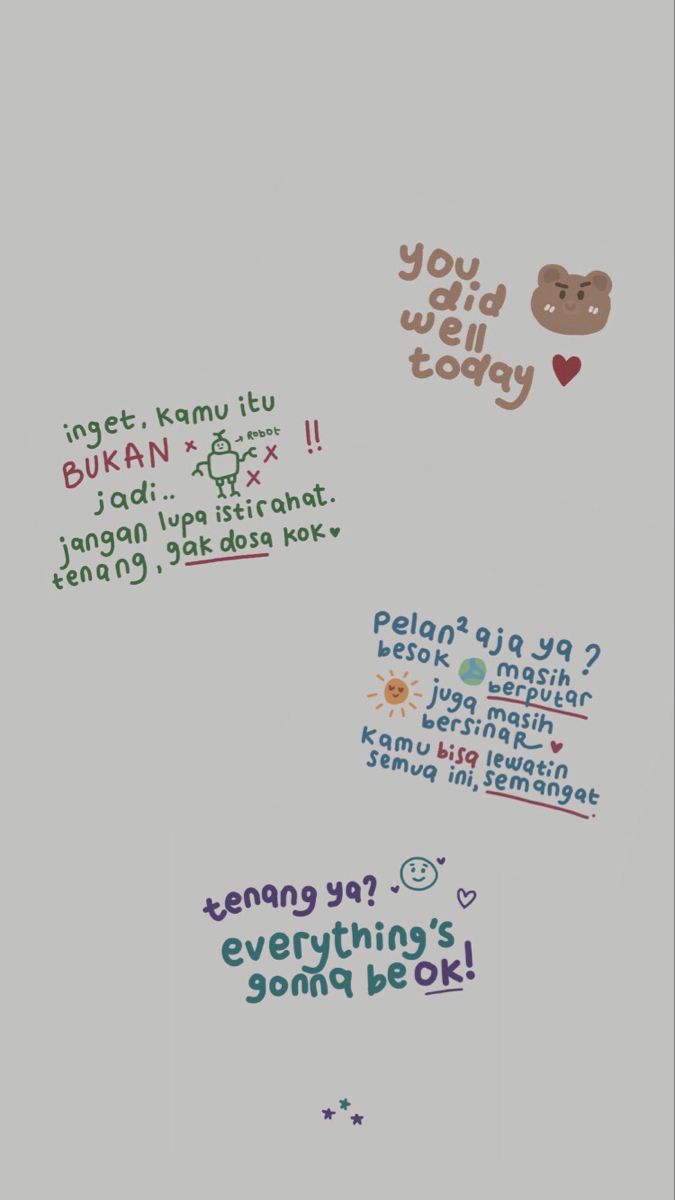 you
did
well
today
inget, kamu itu
BUKAN
Robot
!!
jadi..
jangan lupa istirahat.
tenang, gak dosa kok
Pelan² aja ya?
besok masih
berputar
juga masih
bersinar
Kamu bisa lewatin
semua ini, semangat.
tenang ya?
everything's
gonna be OK!